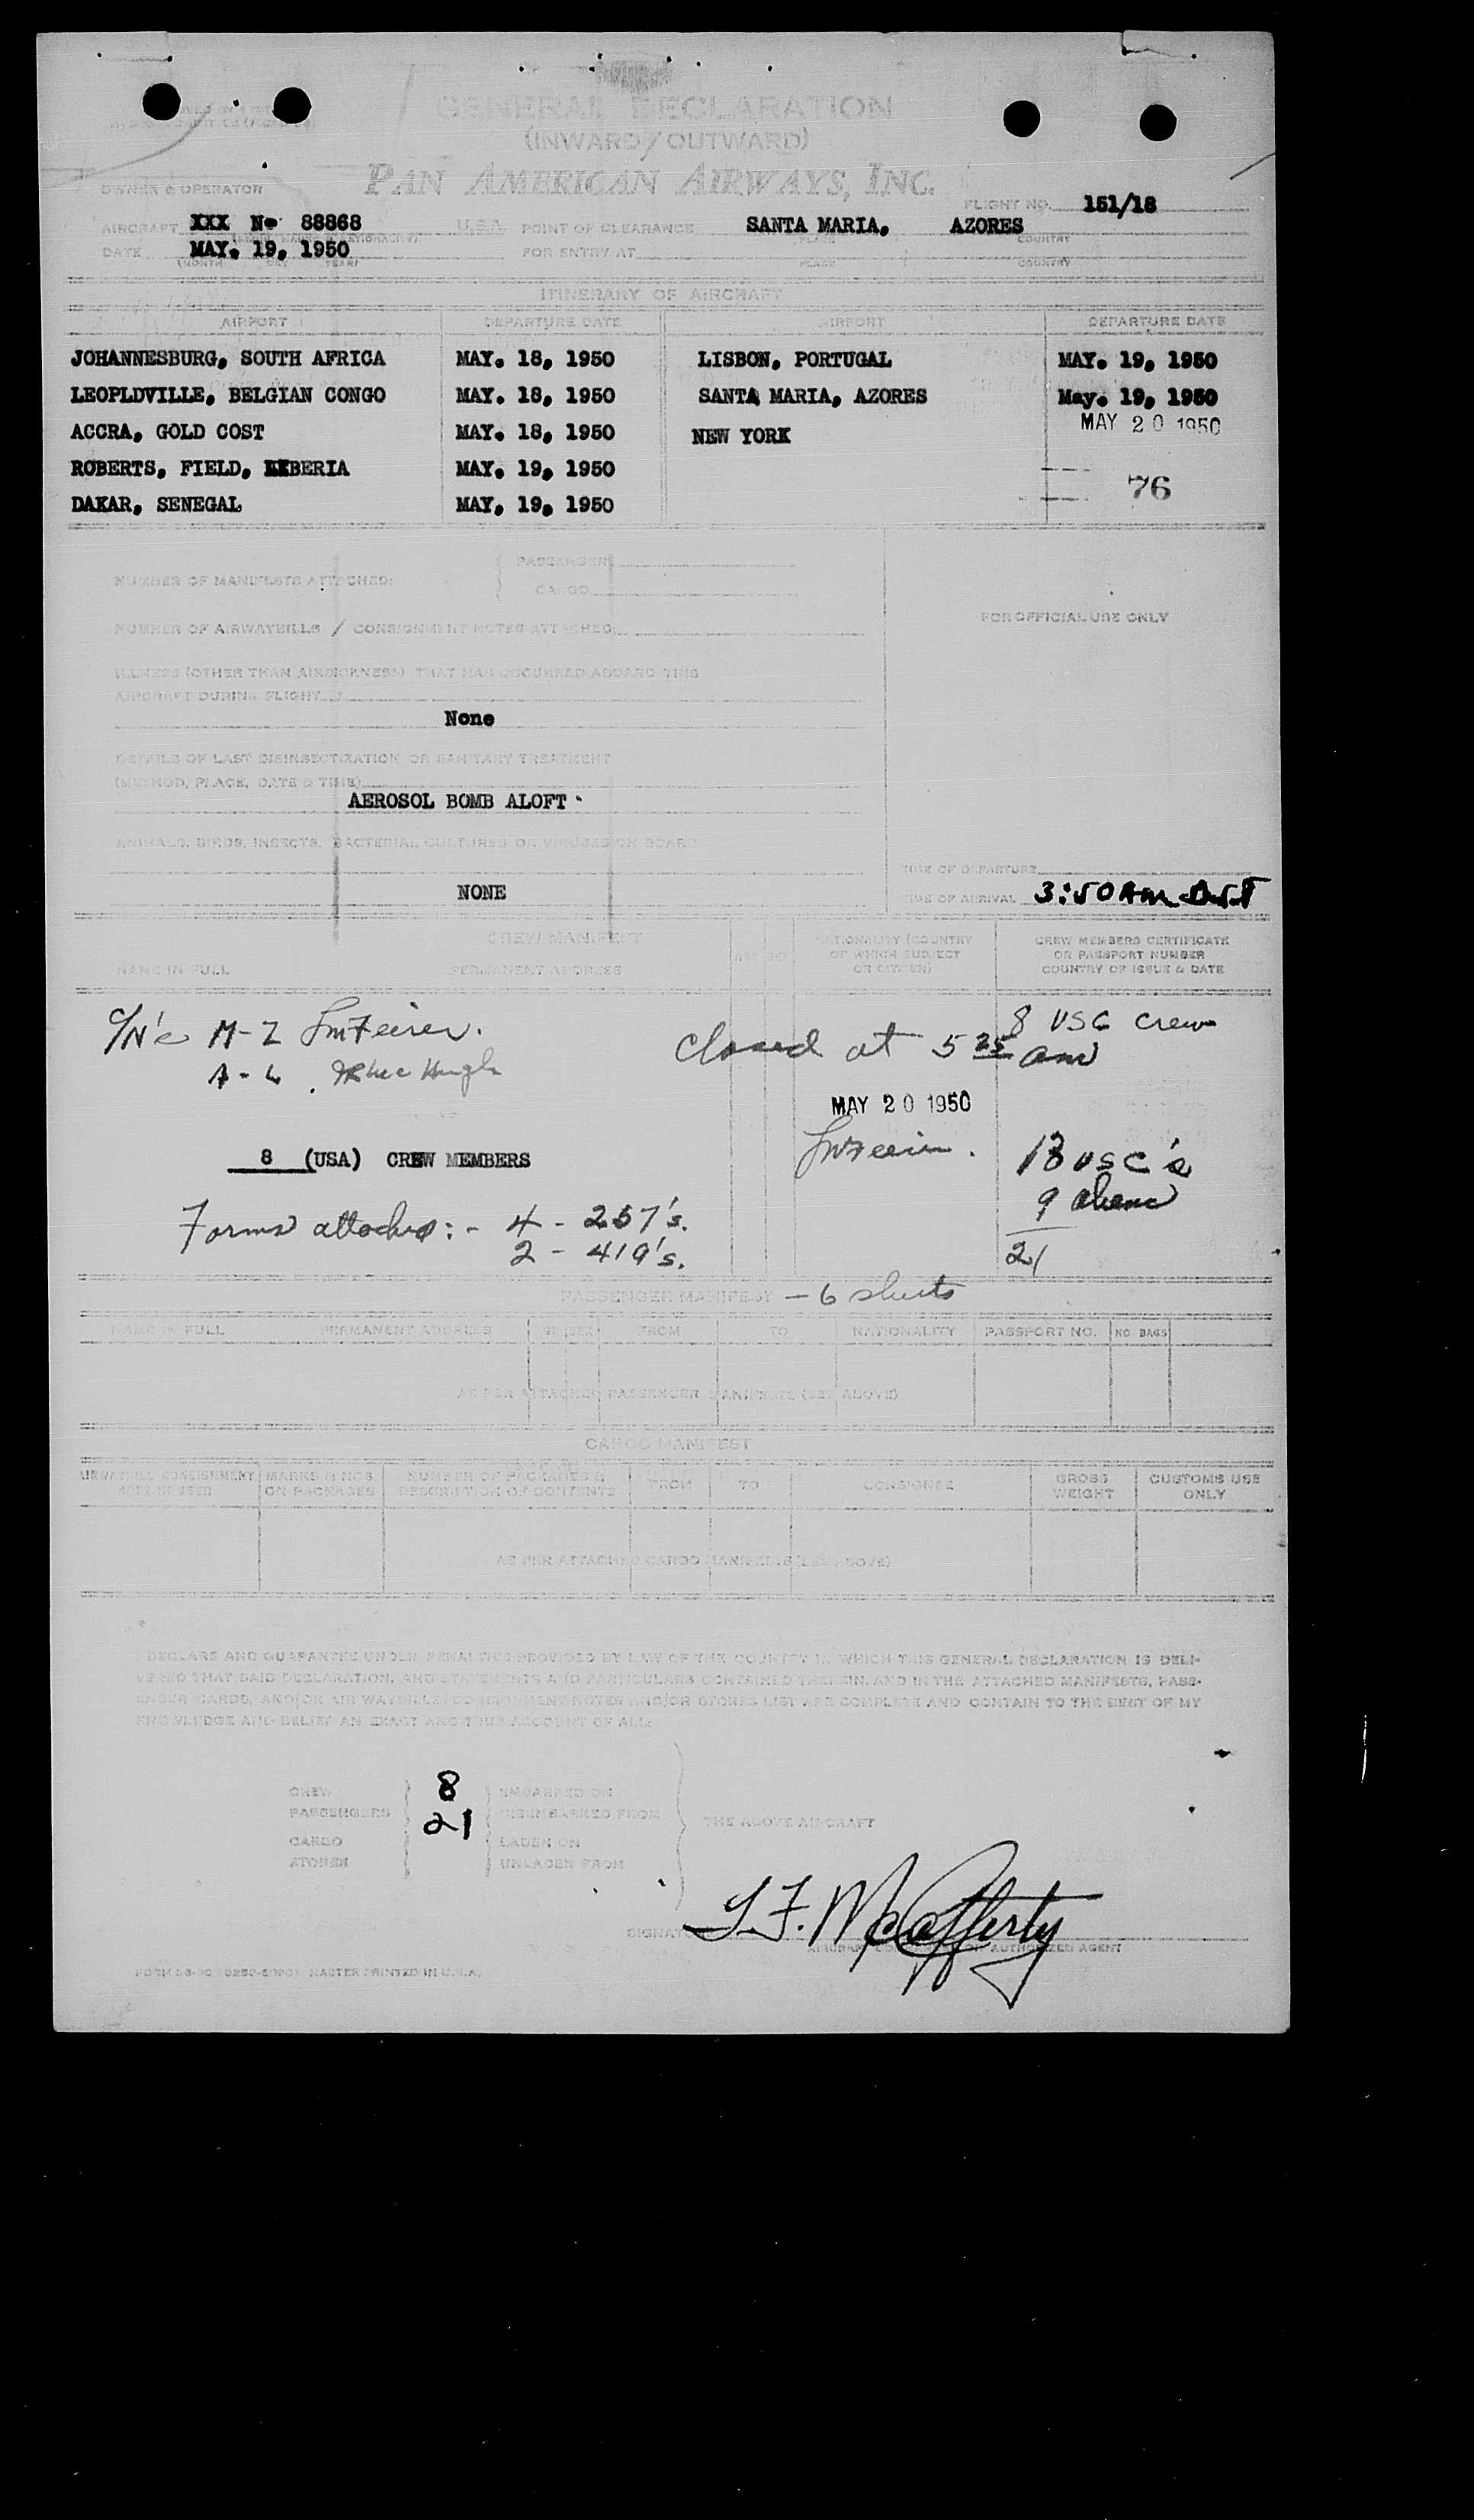 GENERAL DECLARATION
(INWARD/OUTWARD)
PAN AMERICAN AIRWAYS, INC.
OWNER & OPERATOR
FLIGHT NO. 151/18
AIRCRAFT XXX No 88868 U.S.A. POINT OF CLEARANCE SANTA MARIA, AZORES
PLACE COUNTRY
DATE MAY. 19, 1950 FOR ENTRY AT
(MONTH DAY YEAR) PLACE COUNTRY
ITINERARY OF AIRCRAFT
AIRPORT DEPARTURE DATE AIRPORT DEPARTURE DATE
JOHANNESBURG, SOUTH AFRICA MAY. 18, 1950 LISBON, PORTUGAL MAY. 19, 1950
LEOPLDVILLE, BELGIAN CONGO MAY. 18, 1950 SANTA MARIA, AZORES May. 19, 1950
MAY 20 1950
ACCRA, GOLD COST MAY. 18, 1950 NEW YORK
ROBERTS, FIELD, LIBERIA MAY. 19, 1950
76
DAKAR, SENEGAL MAY. 19, 1950
PASSENGER
NUMBER OF MANIFESTS ATTACHED:
CARGO
FOR OFFICIAL USE ONLY
NUMBER OF AIRWAYBILLS / CONSIGNMENT NOTES ATTACHED
ILLNESS (OTHER THAN AIRSICKNESS) THAT HAS OCCURRED ABOARD THIS
AIRCRAFT DURING FLIGHT
None
DETAILS OF LAST DISINSECTIZATION OR SANITARY TREATMENT
(METHOD, PLACE, DATE & TIME)
AEROSOL BOMB ALOFT
ANIMALS, BIRDS, INSECTS, BACTERIAL CULTURES OR VIRUSES ON BOARD
TIME OF DEPARTURE
NONE
TIME OF ARRIVAL 3:50 AM D.S.T
CREW MANIFEST
NAME IN FULL PERMANENT ADDRESS AGE
NATIONALITY (COUNTRY
OF WHICH SUBJECT
OR CITIZEN)
CREW MEMBERS CERTIFICATE
OR PASSPORT NUMBER
COUNTRY OF ISSUE & DATE
M-Z
8 USC crew
closed at 5 25 am
A-L
MAY 20 1950
8 (USA) CREW MEMBERS
13 USC's
9 aliens
Forms attached: - 4 - 257's.
2 - 419's.
21
PASSENGER MANIFEST - 6 sheets
NAME IN FULL PERMANENT ADDRESS SEX FROM TO NATIONALITY PASSPORT NO. NO BAGS
AS PER ATTACHED PASSENGER MANIFESTS (SEE ABOVE)
CARGO MANIFEST
AIRWAYBILL CONSIGNMENT
NOTE NUMBER
MARKS & NOS
ON PACKAGES
NUMBER OF PACKAGES &
DESCRIPTION OF CONTENTS
FROM TO CONSIGNEE
GROSS
WEIGHT
CUSTOMS USE
ONLY
AS PER ATTACHED CARGO MANIFESTS (SEE ABOVE)
I DECLARE AND GUARANTEE UNDER PENALTIES PROVIDED BY LAW OF THE COUNTRY IN WHICH THIS GENERAL DECLARATION IS DELI-
VERED THAT SAID DECLARATION, AND STATEMENTS AND PARTICULARS CONTAINED THEREIN, AND IN THE ATTACHED MANIFESTS, PASS-
ENGER CARDS, AND/OR AIR WAYBILLS/CONSIGNMENT NOTES AND/OR STORES LIST ARE COMPLETE AND CONTAIN TO THE BEST OF MY
KNOWLEDGE AND BELIEF AN EXACT AND TRUE ACCOUNT OF ALL:
CREW 8 EMBARKED ON
PASSENGERS 21 DISEMBARKED FROM
THE ABOVE AIRCRAFT
CARGO LADEN ON
STORES UNLADEN FROM
SIGNATURE L.F. McCafferty
AUTHORIZED AGENT
MASTER PRINTED IN U.S.A.